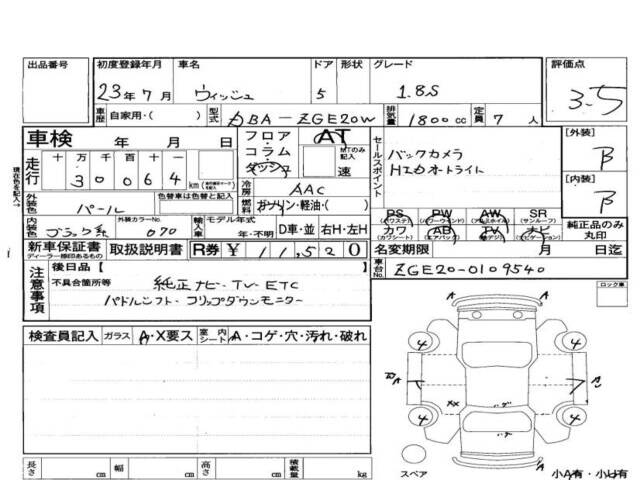 出品番号 初度登録年月 車名 ドア 形状 グレード 評価点
23年7月 ウィッシュ 5 1.8S 3.5
車歴 自家用・( ) 型式 DBA-ZGE20W 排気量 1800cc 定員 7人
車検 年 月 日 フロア・コラム・ダッシュ AT
MTのみ記入 速
セールスポイント バックカメラ
HIDオートライト
[外装] B
[内装] B
現在色を記入→
走行 十万千百十 30064 km
冷房 AAC
外装色 パール 色替車は色替と記入 燃料 ガソリン・軽油・( )
内装色 ブラック系 外装カラーNo. 070 輸入車 モデル年式 年・不明 D車・並 右H・左H
PS (パワステ) PW (パワーウインド) AW (アルミホイル) SR (サンルーフ)
カワ (カワシート) AB (エアバック) TV (テレビ) ナビ (ナビゲーション)
純正品のみ丸印
新車保証書 ディーラー捺印あるもの 取扱説明書 R券 ¥11,520
名変期限 月 日迄
車台No. ZGE20-0109540
注意事項 後日品 [
不具合箇所等 純正ナビ・TV・ETC
パドルシフト・フリップダウンモニター
ロック車
検査員記入 ガラス A・X要ス 室内シート A・コゲ・穴・汚れ・破れ
4 4
A A
XX ハゲ
4 4
ハゲ
A
スペア
小A有・小U有
長さ cm 幅 cm 高さ cm 積載量 kg